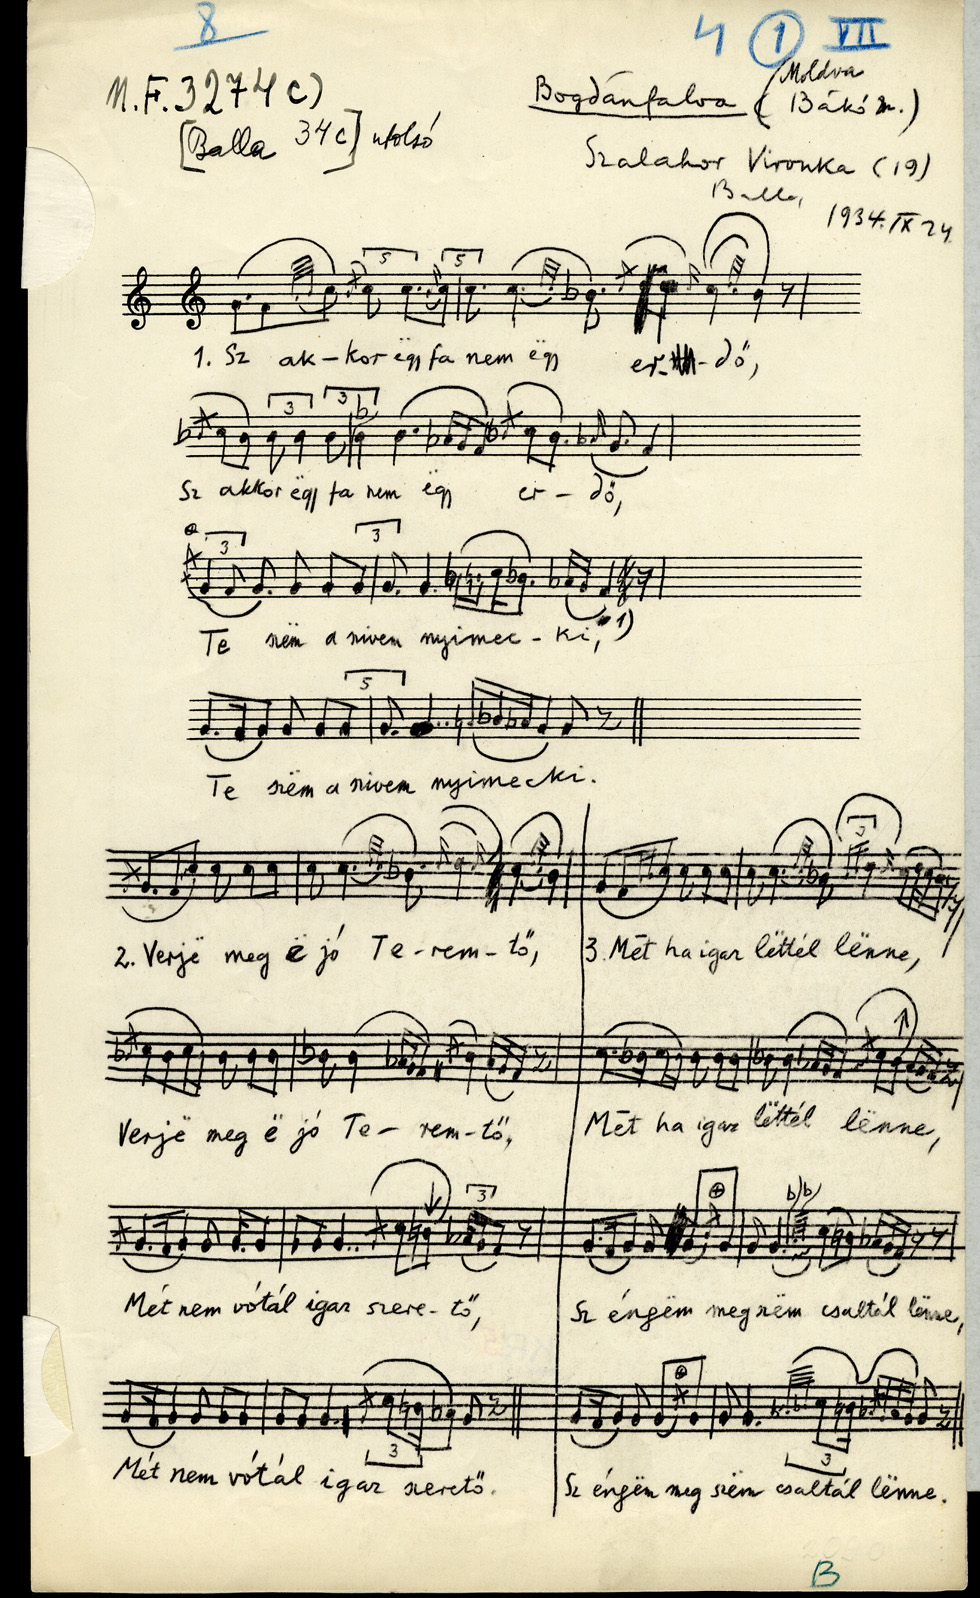 8
4 1 VII
M.F. 3274 c)
[Balla 34c] utolsó
Moldva
Bogdánfalva ( Bákó m.)
Szalahor Vironka (19)
Balla,
1934. IX 24
5 5
1. Sz ak-kor ëgy fa nem ëgy er-dő,
3 3
Sz akkor ëgy fa nem ëgy er-dő,
3 3
Te nëm a nivem nyimec-ki, 1)
5
Te nëm a nivem nyimecki.
3
2. Verjë meg ë jó Te-rem-tő,
3. Mēt ha igaz lëttél lënne,
Verjë meg ë jó Te-rem-tő,
Mēt ha igaz lëttél lënne,
3
Mét nem vótál igaz szere-tő,
Sz éngëm meg nëm csaltál lënne,
3
Mét nem vótál igaz szerető.
3
Sz éngëm meg nëm csaltál lënne.
B